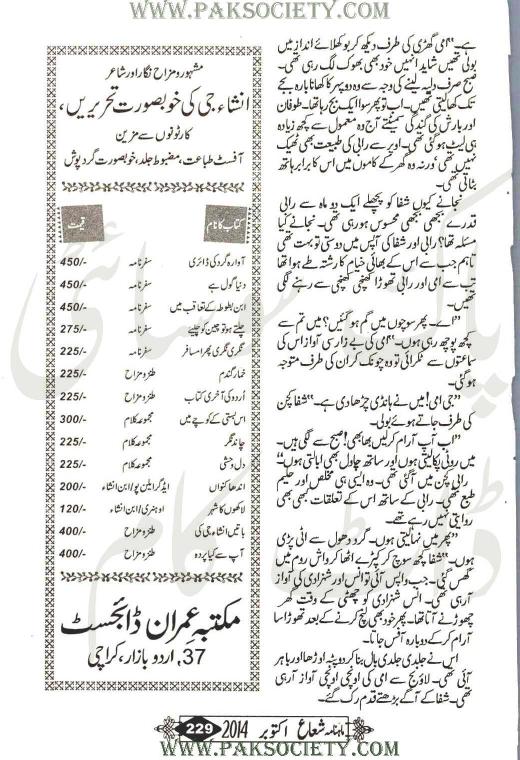 WWW.PAKSOCIETY.COM
ہے۔“ امی گھڑی کی طرف دیکھ کر بوکھلائے انداز میں
بولی تھیں شاید انہیں خود بھی بھوک لگ رہی تھی۔
صبح صرف دلیہ لینے کی وجہ سے وہ دوپہر کا کھانا بارہ بجے
تک کھا لیتی تھیں۔ اب تو پھر سوا ایک بج رہا تھا۔ طوفان
اور بارش کی گندگی سمیٹتے آج وہ معمول سے کچھ زیادہ
ہی لیٹ ہو گئی تھی۔ اوپر سے رابی کی طبیعت بھی ٹھیک
نہیں تھی‘ ورنہ وہ گھر کے کاموں میں اس کا برابر ہاتھ
بٹاتی تھی۔
نجانے کیوں شفا کو پچھلے ایک دو ماہ سے رابی
قدرے بجھی بجھی محسوس ہو رہی تھی۔ نجانے کیا
مسئلہ تھا؟ رابی اور شفا کی آپس میں دوستی تو بہت تھی
تاہم جب سے اس کے بھائی خیام کا رشتہ طے ہوا تھا
تب سے امی اور رابی تھوڑا کھنچی کھنچی سے رہنے لگی
تھیں۔
”اے۔ پھر سوچوں میں گم ہو گئیں؟ میں تم سے
کچھ پوچھ رہی ہوں۔“ امی کی بے زار سی آواز اس کی
سماعتوں سے ٹکرائی تو وہ چونک کر ان کی طرف متوجہ
ہو گئی۔
”جی امی! میں نے ہانڈی چڑھا دی ہے۔“ شفا کچن
کی طرف جاتے ہوئے بولی۔
”اب آپ آرام کر لیں بھابھی! صبح سے لگی ہیں۔
میں روٹی پکا لیتی ہوں اور ساتھ چاول بھی ابالتی ہوں۔“
رابی کچن میں آ گئی تھی۔ وہ ایسی ہی مخلص اور حلیم
طبع تھی۔ رابی کے ساتھ اس کے تعلقات کبھی بھی
روایتی نہیں رہے تھے۔
”پھر میں نہا لیتی ہوں۔ گرد دھول سے اٹی پڑی
ہوں۔“ شفا کچھ سوچ کر کپڑے اٹھا کر واش روم میں
گھس گئی۔ جب واپس آئی تو انس اور شنزادی کی آواز
آ رہی تھی۔ انس شنزادی کو چھٹی کے وقت گھر
چھوڑنے آتا تھا۔ پھر خود بھی لنچ کرنے کے بعد تھوڑا سا
آرام کر کے دوبارہ آفس جاتا۔
اس نے جلدی جلدی بال بنا کر دوپٹہ اوڑھا اور باہر
آئی تھی۔ لاؤنج سے امی کی اونچی اونچی آواز آ رہی
تھی۔ شفا کے آگے بڑھتے قدم رک گئے۔
مشہور و مزاح نگار اور شاعر
انشاء جی کی خوبصورت تحریریں،
کارٹونوں سے مزین
آفسٹ طباعت، مضبوط جلد، خوبصورت گرد پوش
کتاب کا نام قیمت
آوارہ گرد کی ڈائری سفرنامہ 450/-
دنیا گول ہے سفرنامہ 450/-
ابن بطوطہ کے تعاقب میں سفرنامہ 450/-
چلتے ہو تو چین کو چلیے سفرنامہ 275/-
نگری نگری پھرا مسافر سفرنامہ 225/-
خمار گندم طنز و مزاح 225/-
اردو کی آخری کتاب طنز و مزاح 225/-
اس بستی کے کوچے میں مجموعہ کلام 300/-
چاند نگر مجموعہ کلام 225/-
دل وحشی مجموعہ کلام 225/-
اندھا کنواں ایڈگر ایلن پو / ابن انشاء 200/-
لاکھوں کا شہر او ہنری / ابن انشاء 120/-
باتیں انشاء جی کی طنز و مزاح 400/-
آپ سے کیا پردہ طنز و مزاح 400/-
مکتبہ عمران ڈائجسٹ
37, اردو بازار، کراچی
ماہنامہ شعاع اکتوبر 2014 229
WWW.PAKSOCIETY.COM
پاک سوسائٹی
ڈاٹ کام